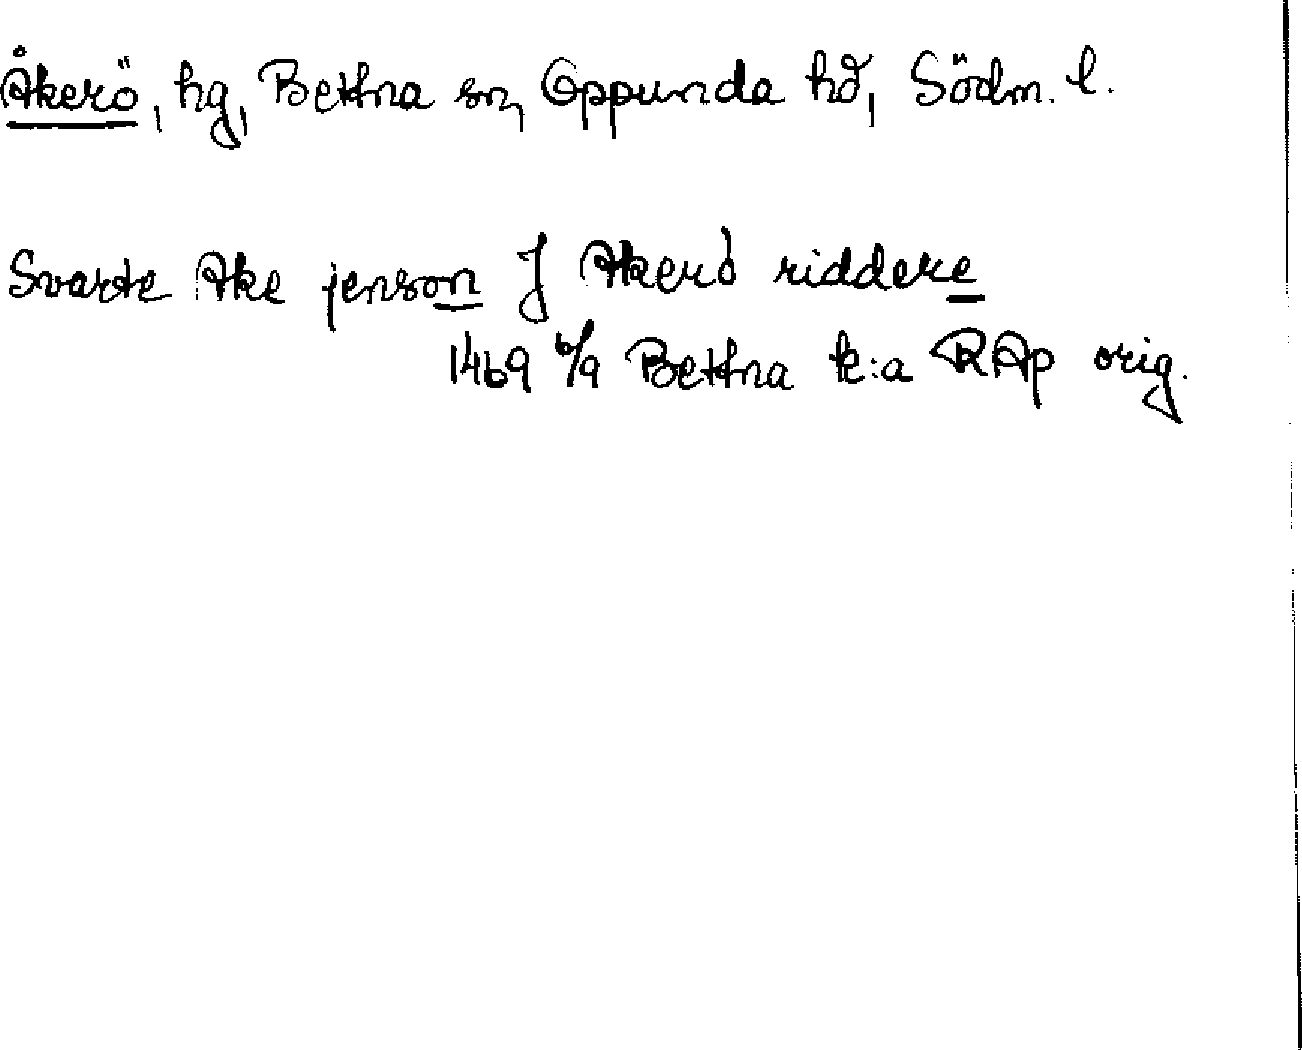 Åkerö, hg, Bettna sn, Oppunda hd, Södm. l.
Svarte Ake jenson J Akerö riddere
1469 6/9 Bettna k:a RAp orig.